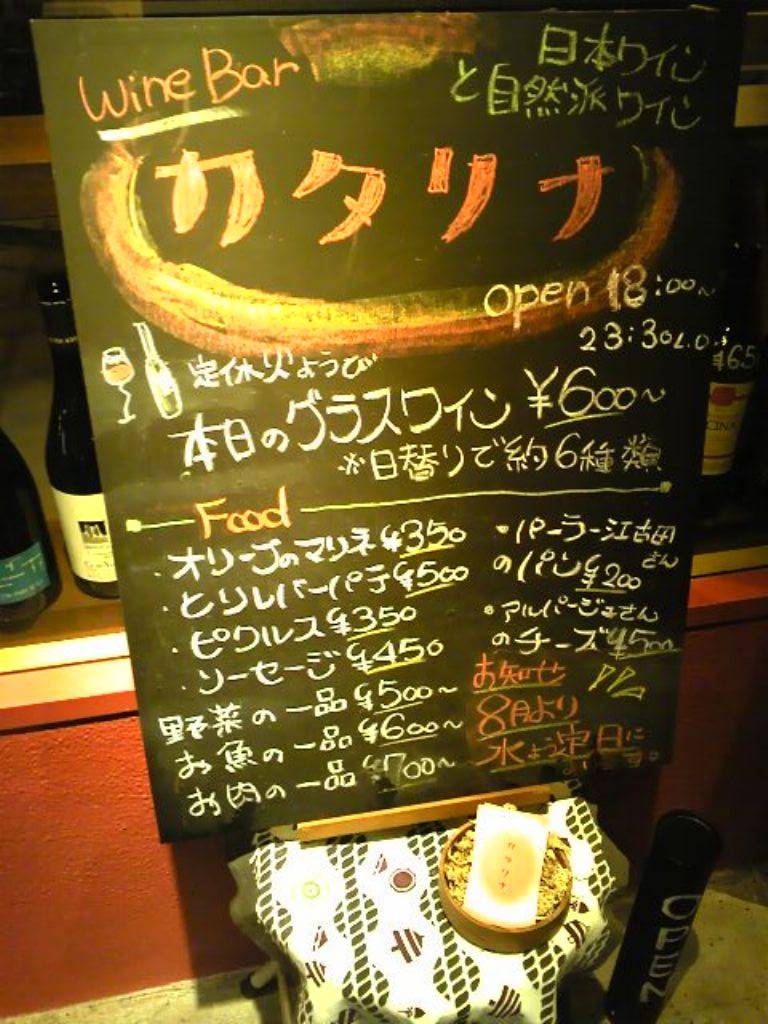 Wine Bar
日本ワイン
と自然派ワイン
カタリナ
open 18:00~
23:30 L.O.
定休 火ようび
本日のグラスワイン ¥600~
※日替りで約6種類
Food
・オリーブのマリネ ¥350
・とりレバーパテ ¥500
・ピクルス ¥350
・ソーセージ ¥450
野菜の一品 ¥500~
お魚の一品 ¥600~
お肉の一品 ¥700~
・パーラー江古田さん
のパン ¥200
・アルパージュさん
のチーズ ¥500
お知せ
8月より
水よう
日に
す。
カタリナ
OPEN